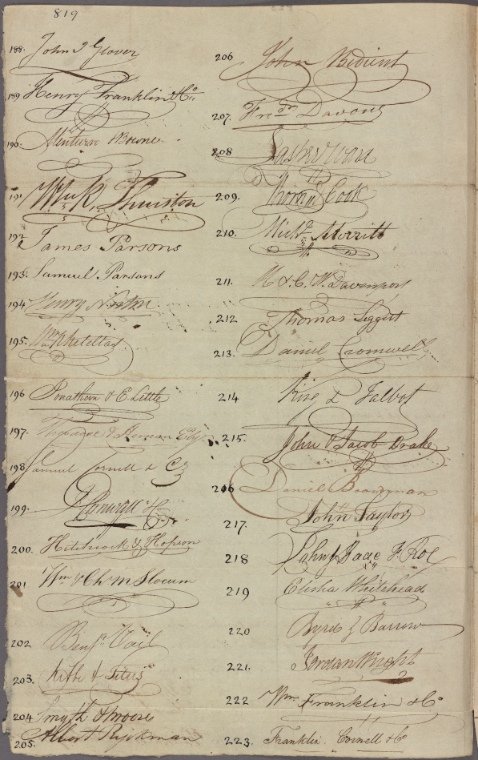 819
188. John I Glover
189. Henry Franklin & Co
190. Minturn
191. Wm R. Thurston
192. James Parsons
193. Samuel Parsons
194. Henry
195. Wm Ketteltas
196 Jonathan & E Little
197.
198. Samuel Cornell & Co
199.
200. Hitchcock & Hopson
201. Wm & Ch M Slocum
202. Benj. Vail
203. & Peters
204. Smyth & Moore
205. Albert Ryckman
206 John
207.
208
209. Thomas Cook
210. Merritt
211. M & C. W. Davenport
212. Thomas Liggett
213. Daniel Cromwell
214 King & Talbot
215. John & Jacob Drake
216 Daniel Boardman
217. John Taylor
218
219 Elisha Whitehead
220 Byrd & Barrow
221. Jordan Wright
222 Wm Franklin & Co
223. Franklin Cornell & Co